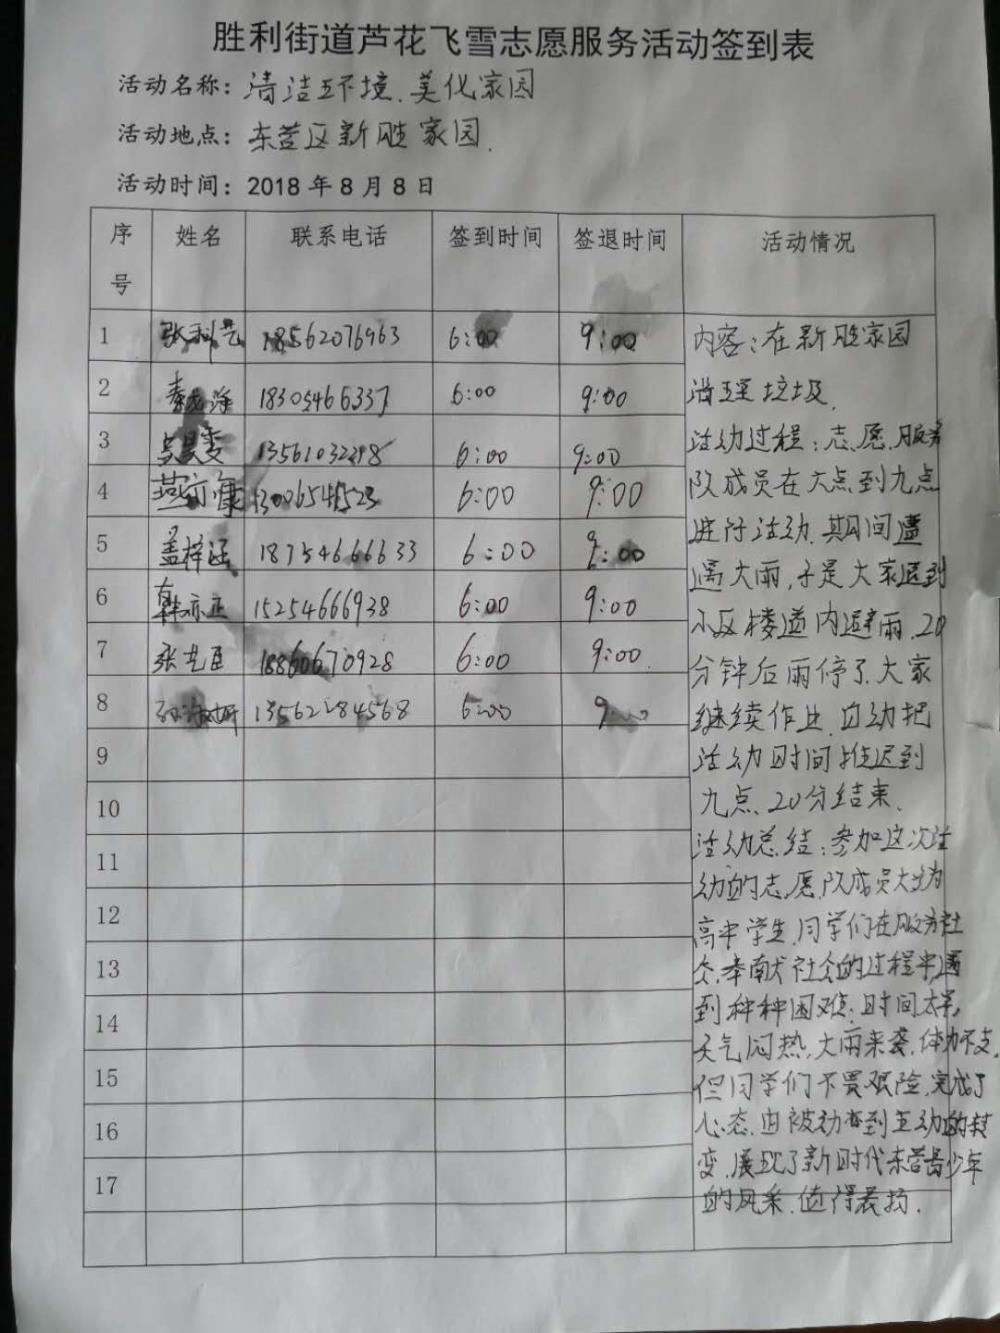 胜利街道芦花飞雪志愿服务活动签到表
活动名称：清洁环境.美化家园
活动地点：东营区新胜家园.
活动时间：2018年8月8日
序号 姓名 联系电话 签到时间 签退时间 活动情况
1 18562076963 6:00 9:00
2 18305466337 6:00 9:00
3 6:00 9:00
4 6:00 9:00
5 盖梓涵 18754666633 6:00 9:00
6 韩亦正 15254666938 6:00 9:00
7 张艺臣 18860670928 6:00 9:00
8 13562184568 6:00
9
10
11
12
13
14
15
16
17
内容：在新胜家园
清理垃圾.
活动过程：志愿服务
队成员在六点到九点
进行活动.期间遭
遇大雨,于是大家退到
小区楼道内避雨.20
分钟后雨停了.大家
继续作业.自动把
活动时间推迟到
九点20分结束.
活动总结：参加这次活
动的志愿队成员大为
高中学生.同学们在服务社
会.奉献社会的过程中遇
到种种困难：时间太早,
天气闷热,大雨来袭,体力不支,
但同学们不畏艰险,完成了
心态.由被动到主动的转
变,展现了新时代东营青少年
的风采.值得表扬.